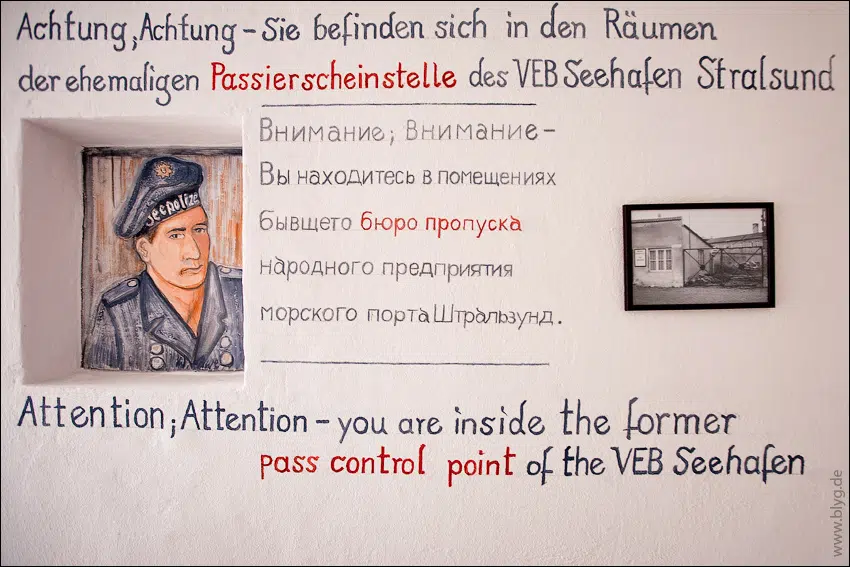 Achtung, Achtung – Sie befinden sich in den Räumen
der ehemaligen Passierscheinstelle des VEB Seehafen Stralsund
Внимание, Внимание –
Вы находитесь в помещениях
бывщего бюро пропуска
народного предприятия
морского порта Штральзунд.
Seepolizei
Attention, Attention – you are inside the former
pass control point of the VEB Seehafen
www.blyg.de